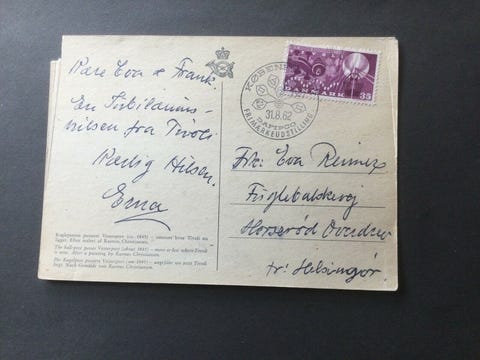 Kære Eva & Frank.
En Jubilæums-
hilsen fra Tivoli
Kærlig Hilsen.
Erna
Kuglepostens passerer Vesterport (ca. 1845) – omtrent hvor Tivoli nu
ligger. Efter maleri af Rasmus Christiansen.
The ball-post passes Vesterport (about 1845) – more or less where Tivoli
is now. After a painting by Rasmus Christiansen.
Die Kugelpost passiert Vesterport (um 1845) – ungefähr wo jetzt Tivoli
liegt. Nach Gemälde von Rasmus Christiansen.
KØBENHAVN
31.8.62
DAFIPOO
FRIMÆRKEUDSTILLING
DANMARK 35
Frk: Eva Reimer
Fuglebakkevej
Horserød Overdrev
pr: Helsingør.